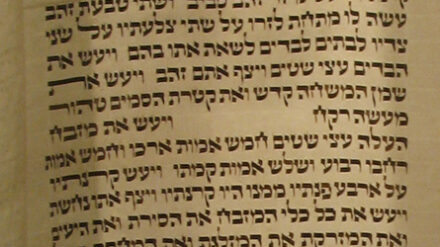 זהב סביב ושתי טבעת זהב
עשה לו מתחת לזרו על שתי צלעתיו על שני
צדיו לבתים לבדים לשאת אתו בהם ויעש את
הבדים עצי שטים ויצף אתם זהב ויעש את
שמן המשחה קדש ואת קטרת הסמים טהור
מעשה רקח ויעש את מזבח
העלה עצי שטים חמש אמות ארכו וחמש אמות
רחבו רבוע ושלש אמות קמתו ויעש קרנתיו
על ארבע פנתיו ממנו היו קרנתיו ויצף אתו נחשת
ויעש את כל כלי המזבח את הסירת ואת היעים
ואת המזרקת את המזלגת ואת המחתת